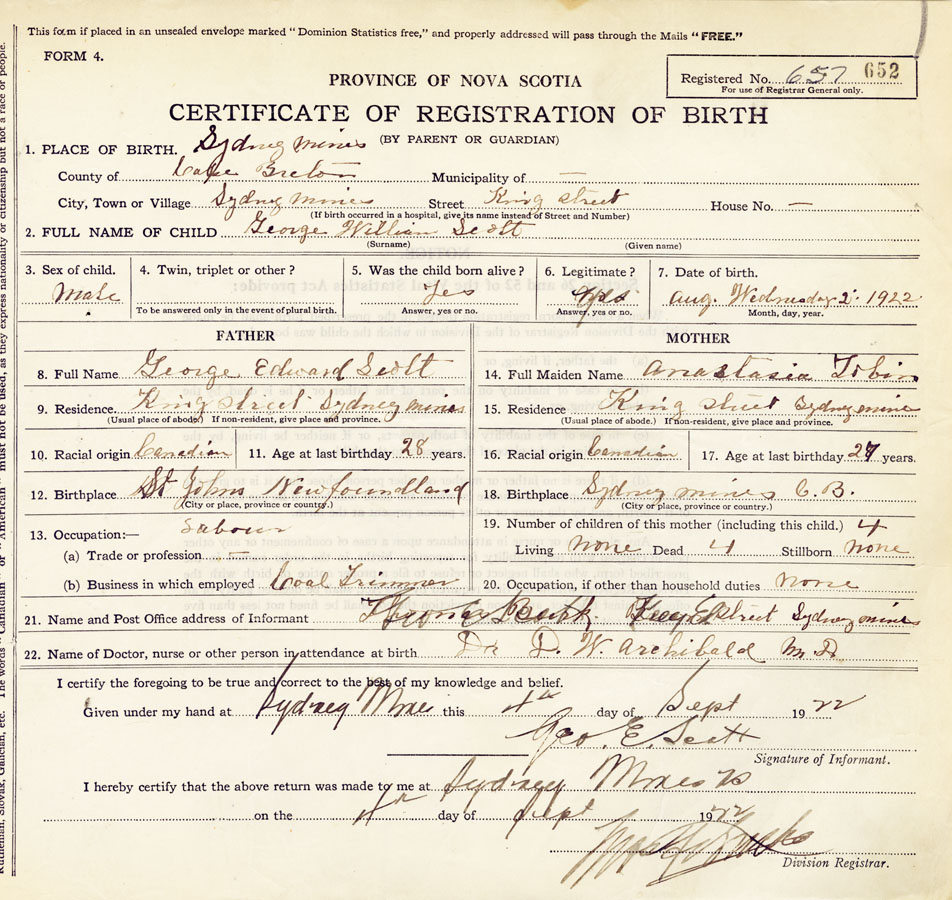 This form if placed in an unsealed envelope marked "Dominion Statistics free," and properly addressed will pass through the Mails "FREE."
FORM 4.
PROVINCE OF NOVA SCOTIA
Registered No. 657 652
For use of Registrar General only.
CERTIFICATE OF REGISTRATION OF BIRTH
(BY PARENT OR GUARDIAN)
1. PLACE OF BIRTH. Sydney mines
County of Cape Breton Municipality of —
City, Town or Village Sydney mines Street King street House No. —
(If birth occurred in a hospital, give its name instead of Street and Number)
2. FULL NAME OF CHILD George William Scott
(Surname) (Given name)
3. Sex of child. 4. Twin, triplet or other? 5. Was the child born alive? 6. Legitimate? 7. Date of birth.
Male Yes yes aug. Wednesday 2. 1922
To be answered only in the event of plural birth. Answer, yes or no. Answer, yes or no. Month, day, year.
FATHER MOTHER
8. Full Name George Edward Scott 14. Full Maiden Name Anastasia Tobin
9. Residence King street Sydney mines 15. Residence King street Sydney mines
(Usual place of abode.) If non-resident, give place and province. (Usual place of abode.) If non-resident, give place and province.
10. Racial origin Canadian 11. Age at last birthday 28 years. 16. Racial origin Canadian 17. Age at last birthday 27 years.
12. Birthplace St Johns Newfoundland 18. Birthplace Sydney mines C. B.
(City or place, province or country.) (City or place, province or country.)
13. Occupation:— Labour 19. Number of children of this mother (including this child.) 4
(a) Trade or profession — Living none Dead 4 Stillborn none
(b) Business in which employed Coal Trimmer 20. Occupation, if other than household duties none
21. Name and Post Office address of Informant street Sydney mines
22. Name of Doctor, nurse or other person in attendance at birth Dr D. W. Archibald M. D
I certify the foregoing to be true and correct to the best of my knowledge and belief.
Given under my hand at Sydney Mines this 4th day of Sept 1922
Geo. E. Scott
Signature of Informant.
I hereby certify that the above return was made to me at Sydney Mines
on the 4th day of Sept 1922
Division Registrar.